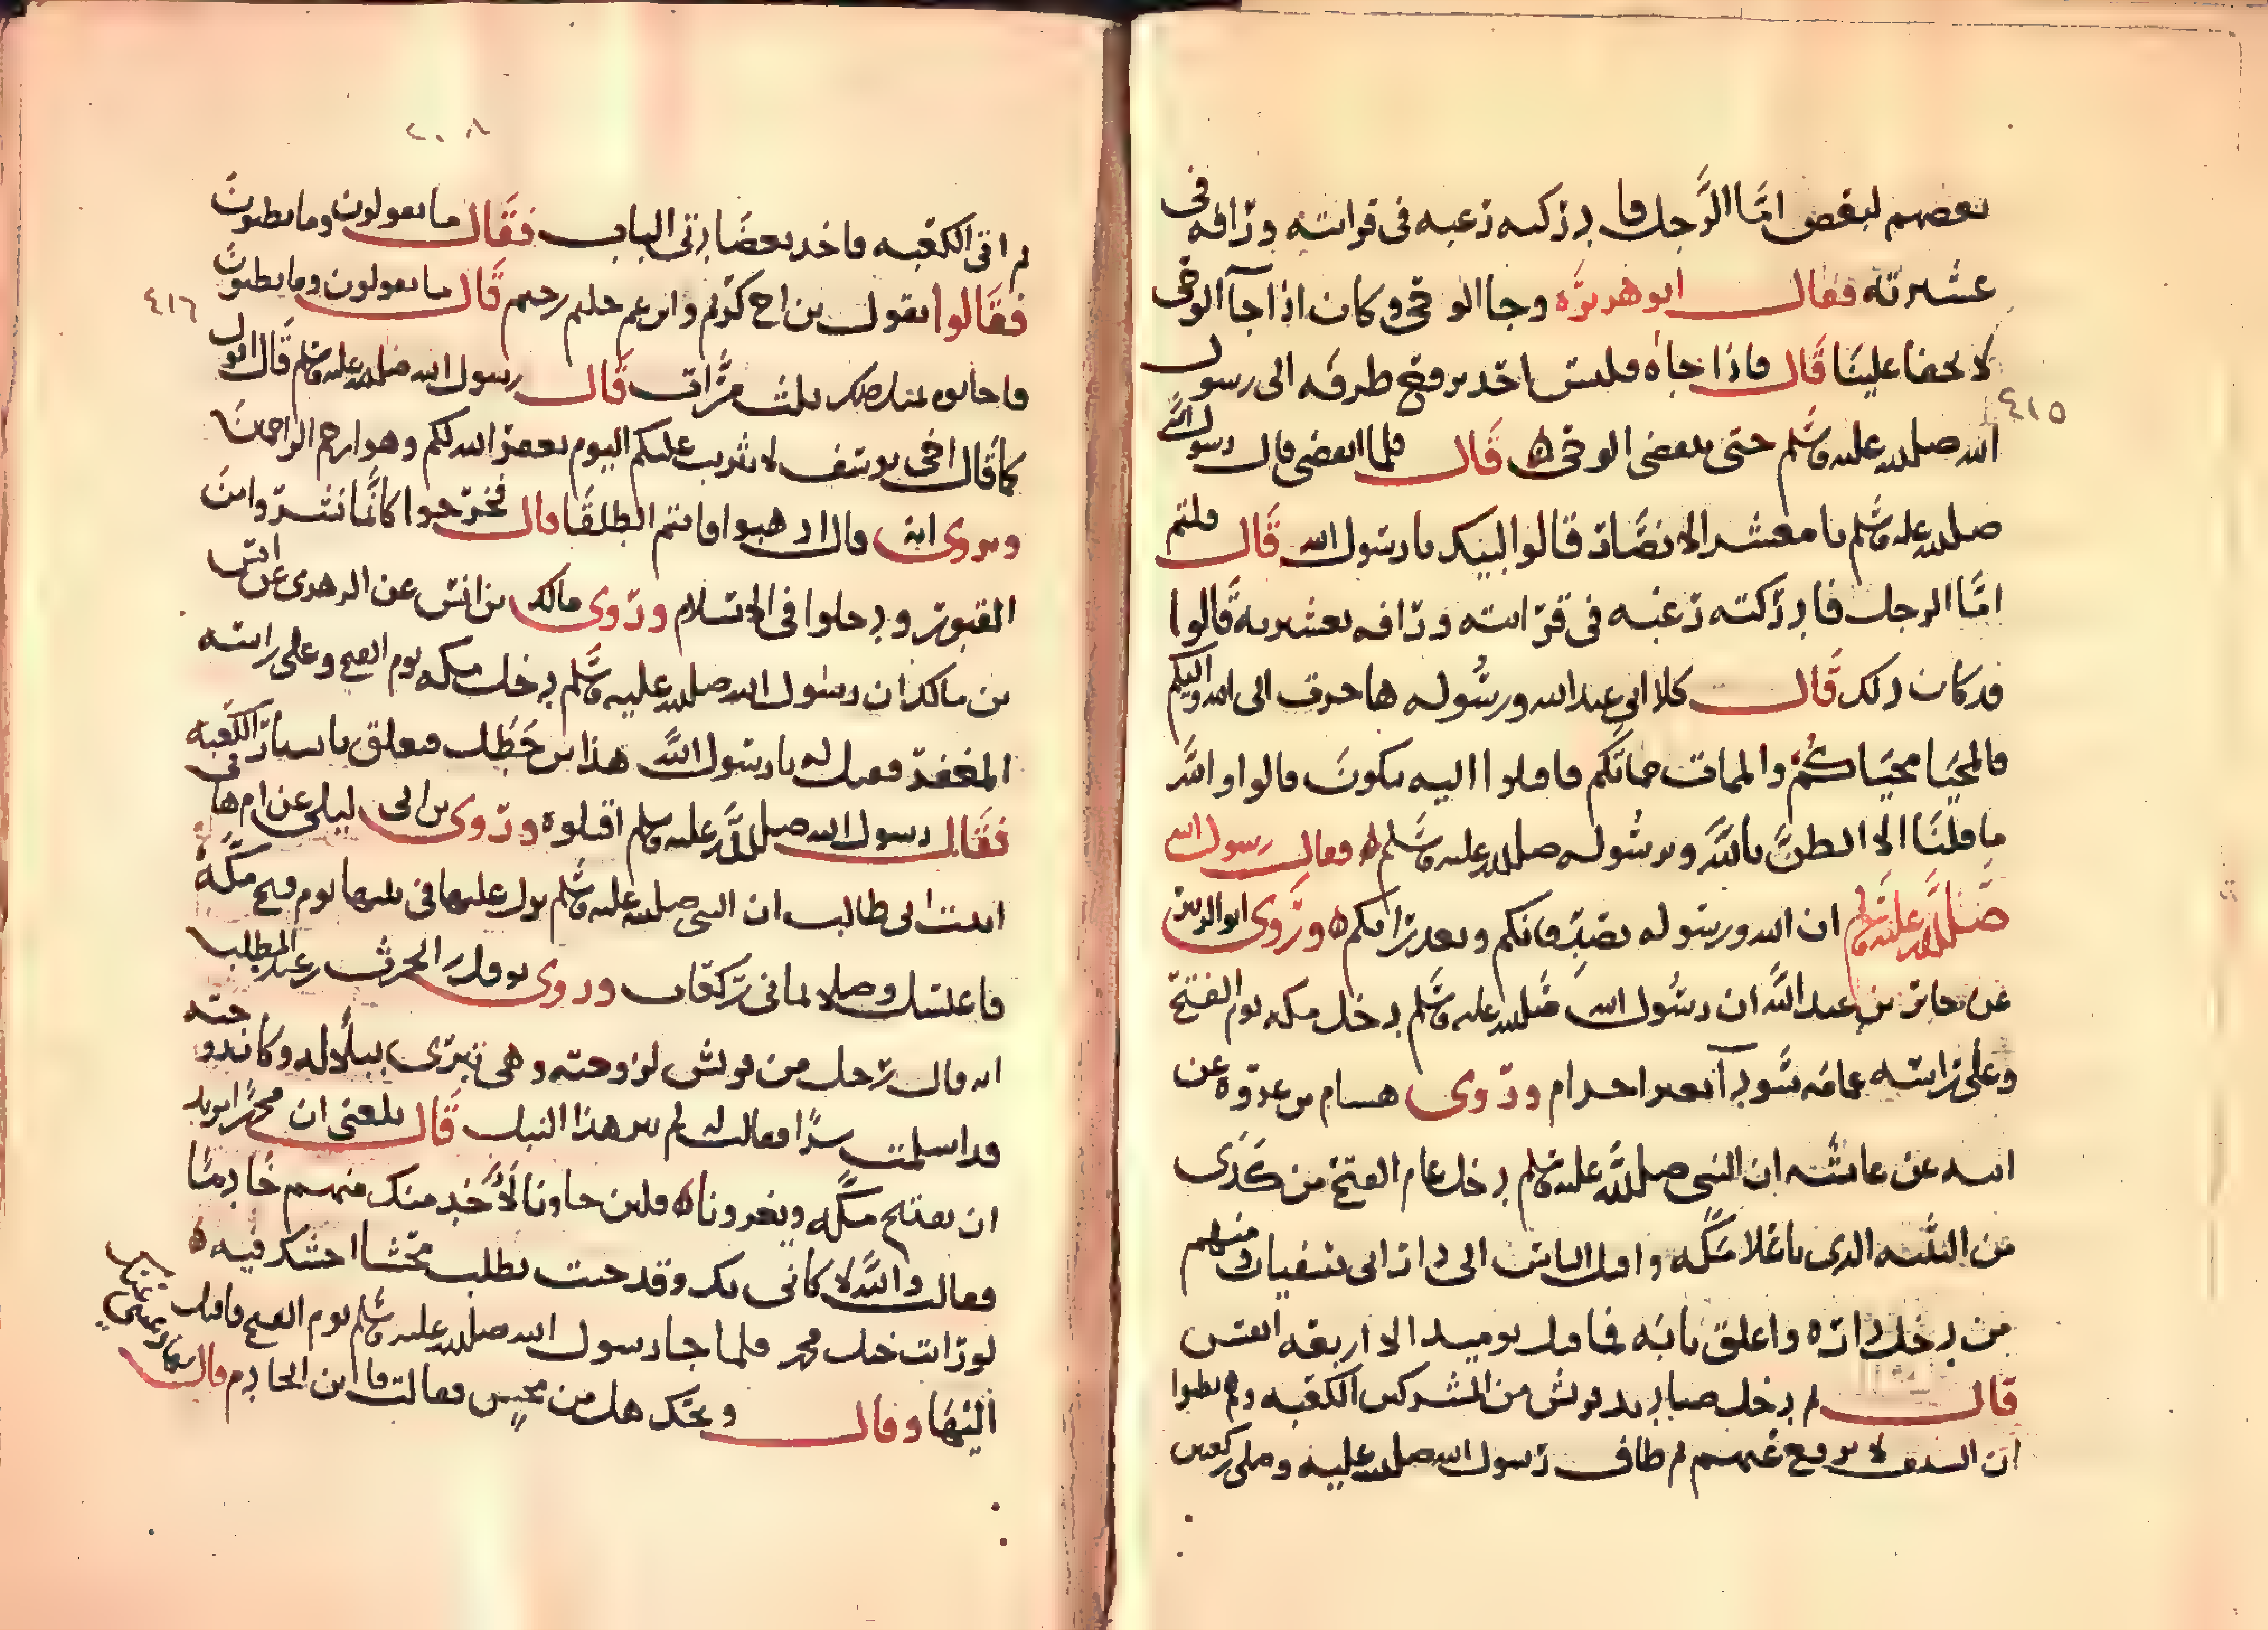 بعضهم لبعض امّا الرَّجل فادركته رغبه فى قرابته ورافه فى
عشيرته فقال ابو هريرَه وجا الوحى وكان اذا جآ الوحى
لا يخفا علينَا قَال فاذا جاه فليس احد يرفع طرفه الى رسول
٤١٥
الله صلى الله عليه وسَلم حتى ينقضى الوحى ه قَال فلما انقضى قال رسول الله
صلى الله عليه وسَلم يا معشر الانصَار قالوا لبيك يا رسول الله قَال قلتم
امَّا الرجل فادركته رغبه فى قرابته ورافه بعشيرته قَالوا
قد كان ذلك قَال كلا انى عبد الله ورسُوله هاجرت الى الله واليكم
فالمحيَا محيَاكُم والممات مماتكم فاقبلوا اليه يبكونَ قالوا والله
ما قلنَا الا الظنَّ بالله وبرسُوله صلى الله عليه وسَلم ه فقال رسول الله
صَلى الله عليه وسَلم ان الله ورسوله يصَدِّقانكم ويعذرانكم ه ورَوى ابو الزبير
عن جابر بن عبد الله ان رسُول الله صَلى الله عليه وسَلم دخل مكه يوم الفتح
وعلى راسه عمامه سَودآ بغير احرام وروى هشام بن عروة عن
ابيه عن عائشه ان النبى صلى الله عليه وسلم دخل عام الفتح من كَدَى
من الثنيه الذى باعلا مكَّه واقبل الناس الى دار ابى سفيان ومنهم
من دخل داره واغلق بابه فما قتل يوميد الا اربعه انفس
قال ثم دخل صناديد قريش من المشركين الكعبه وهم يظنوا
ان السيف لا يرفع عنهم ثم طاف رسول الله صلى الله عليه وصلى ركعتين
٢٠٨
ثم اتى الكعبه فاخد بعضَادتى الباب فقَال ما تقولون وما تظنونَ
فقَالوا نقول بن اخ كريم وابن عم حليم رحيم قَال ما تقولون وما تظنونَ
٤١٦
فاجابوه بمثل ذلك ثلث مرَّات قَال رسول الله صلى الله عليه وسلم قَال اقول
كما قَال اخى يوسف لا تثريب عليكم اليوم يغفر الله لكم وهو ارحم الراحمينَ
ويروى انه قال اذهبوا فانتم الطلقَا قال فخرَجوا كانَّما نشروا منَ
القبور ودخلوا فى الاسلام وروى مالك بن انس عن الزهرى عن انس
بن مالك ان رسُول الله صلى الله عليه وسَلم دخل مكه يوم الفتح وعلى راسه
المغفر فقيل له يا رسُول الله هذا بن خَطَل متعلق باستار الكعبه
فقَال رسول الله صلى الله عليه وسلم اقتلوه وروى بن ابى ليلى عن ام هانى
ابنت ابى طالب ان النبى صلى الله عليه وسَلم نزل عليها فى بيتها يوم فتح مكَّهَ
فاغتسل وصلا ثمانى رَكعَات وروى نوفل بن الحرث بن عبد المطلب
انه قال رَجل من قريش لزوجته وهى تبرى نبلًا له وكانت زوجته
قد اسلمت سرًّا فقالت له لم تبر هذا النبل قَال بلغنى ان محمدًا يريد
ان يفتح مكَّه ويغزونا ه فلين جاونا لأخدمنك منهم خَادمًا
فقالت والله لا كانى بك وقد جيت تطلب محشا احشك فيه ه
لو رايت خيل محمد فلما جا رسول الله صلى الله عليه وسَلم يوم الفتح فاقبل
اليهَا وقال ويحك هل من محش فقالت فاين الخادم قال دعينى عنك